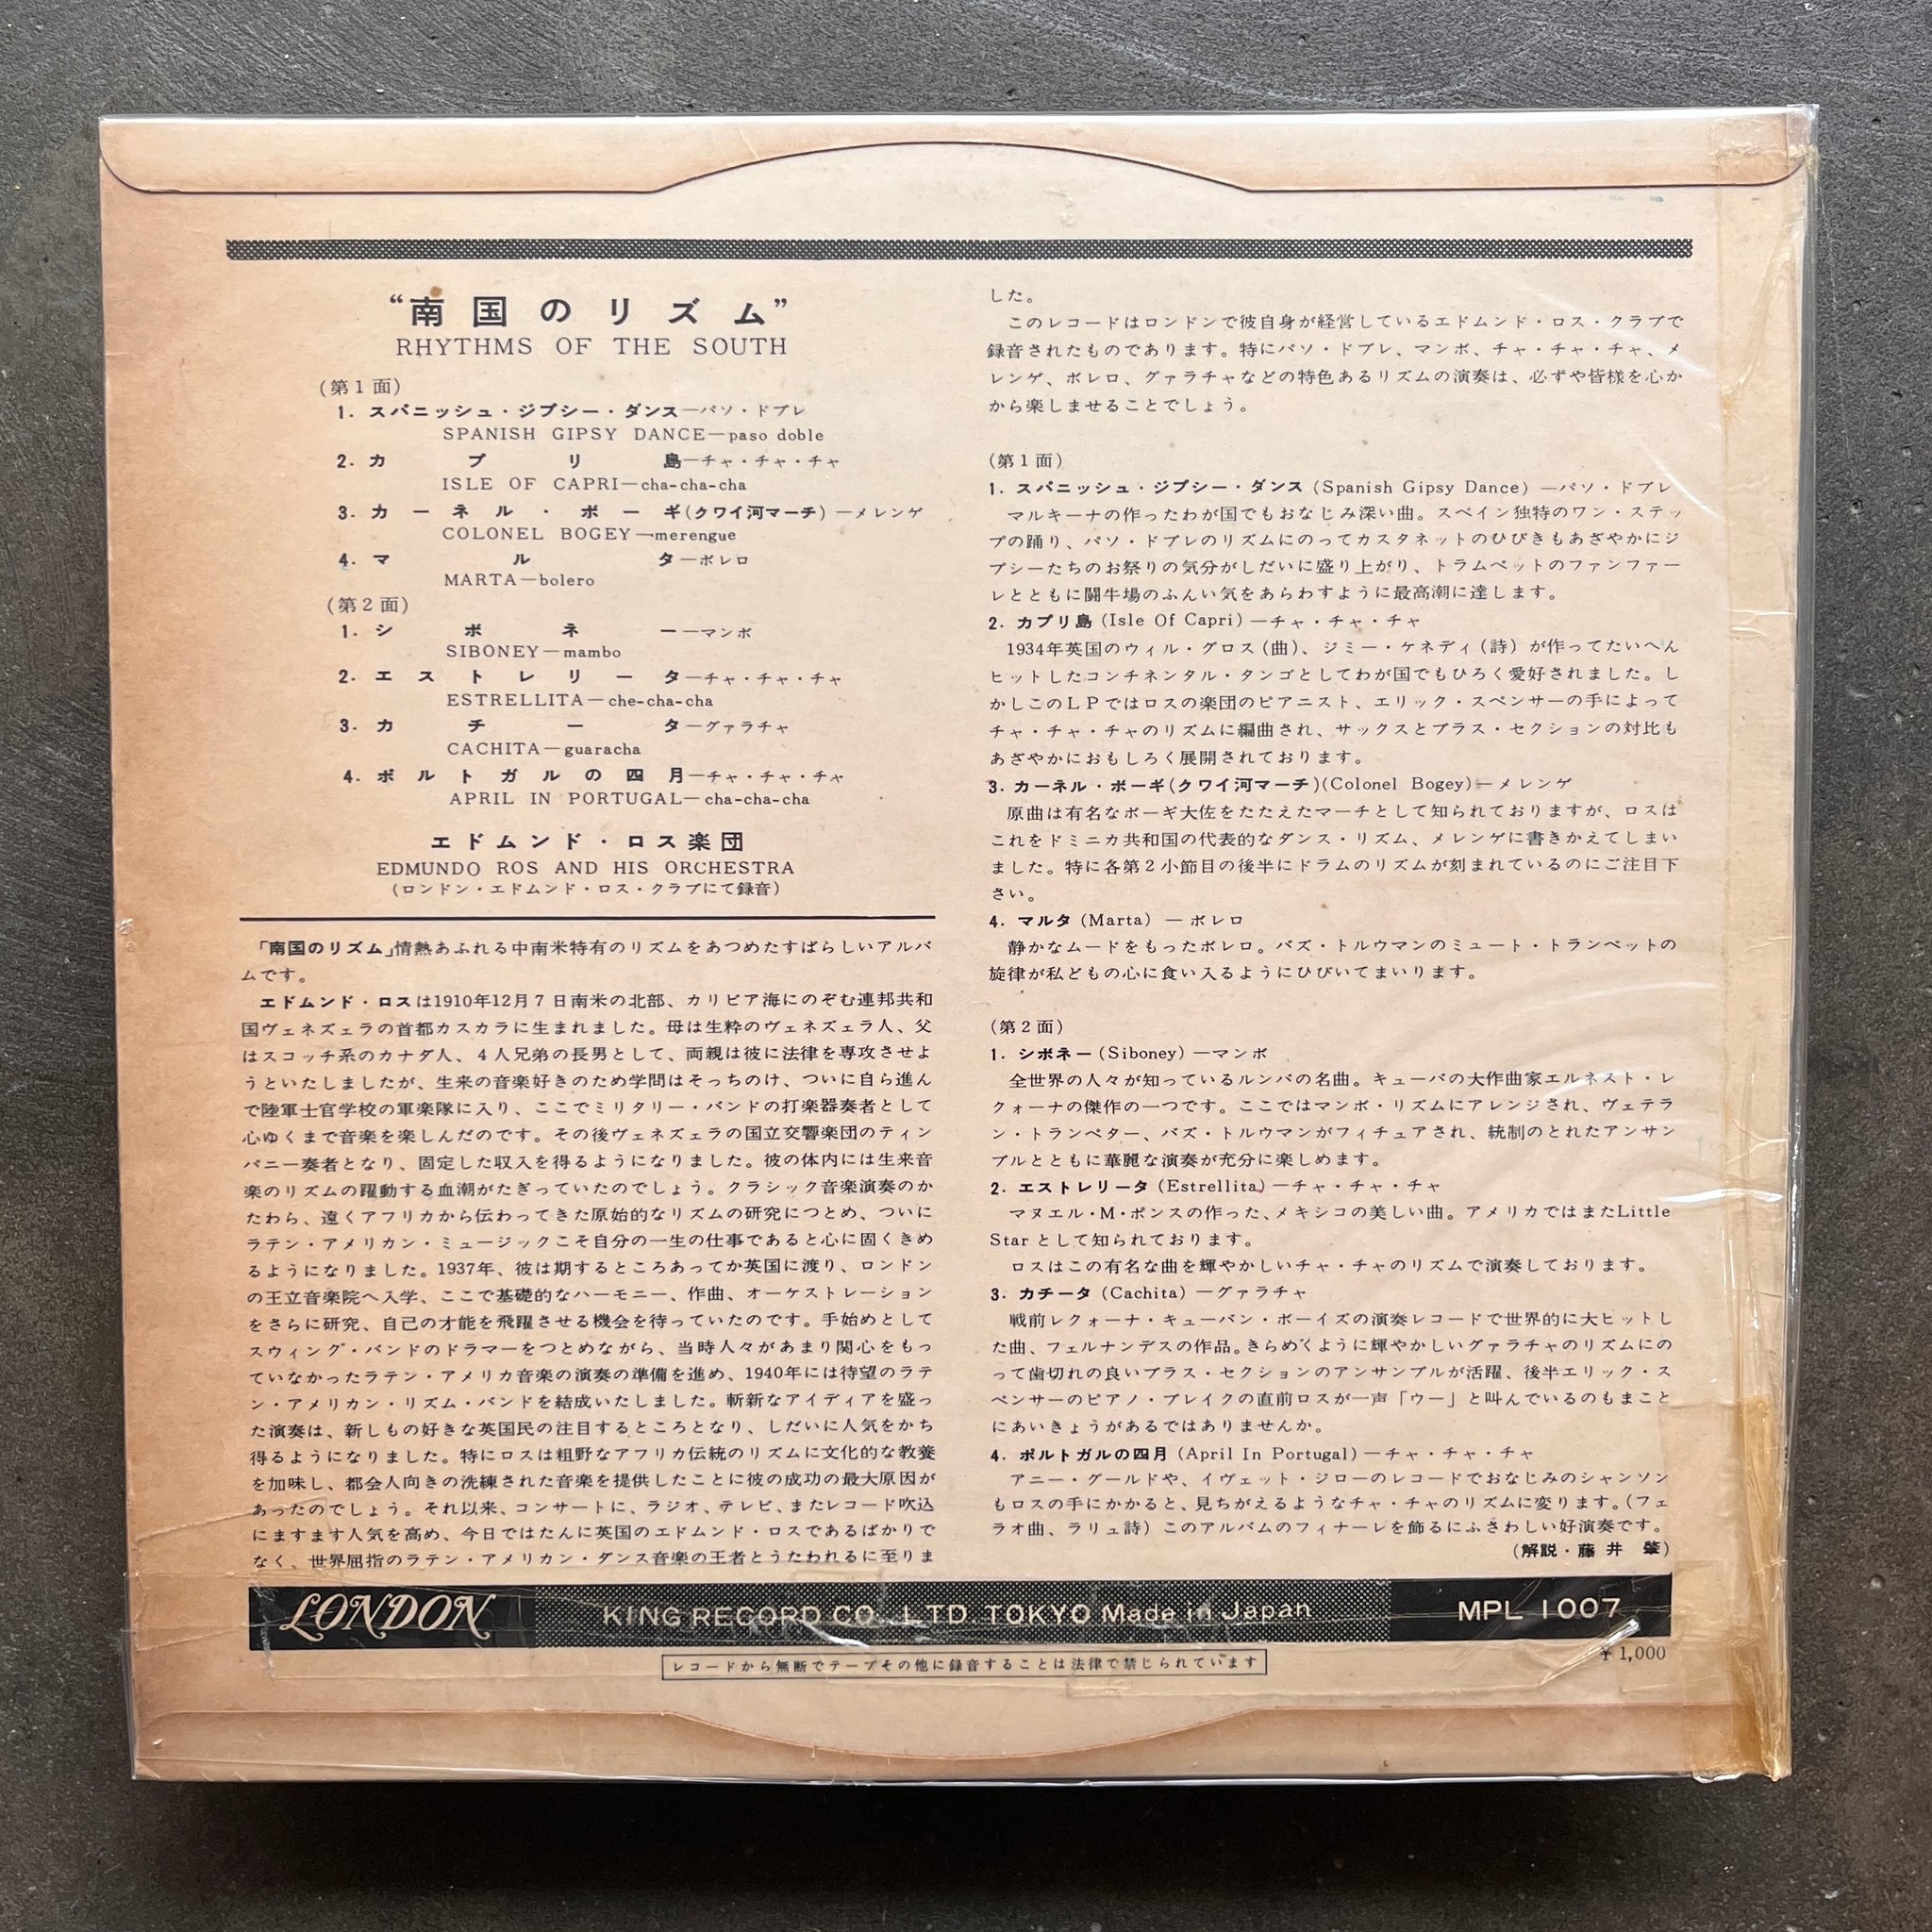 “南国のリズム”
RHYTHMS OF THE SOUTH
(第1面)
1. スパニッシュ・ジプシー・ダンス―パソ・ドブレ
SPANISH GIPSY DANCE―paso doble
2. カプリ島―チャ・チャ・チャ
ISLE OF CAPRI―cha-cha-cha
3. カーネル・ボーギ(クワイ河マーチ)―メレンゲ
COLONEL BOGEY―merengue
4. マルタ―ボレロ
MARTA―bolero
(第2面)
1. シボネー―マンボ
SIBONEY―mambo
2. エストレリータ―チャ・チャ・チャ
ESTRELLITA―che-cha-cha
3. カチータ―グァラチャ
CACHITA―guaracha
4. ポルトガルの四月―チャ・チャ・チャ
APRIL IN PORTUGAL―cha-cha-cha
エドムンド・ロス楽団
EDMUNDO ROS AND HIS ORCHESTRA
(ロンドン・エドムンド・ロス・クラブにて録音)
「南国のリズム」情熱あふれる中南米特有のリズムをあつめたすばらしいアルバ
ムです。
エドムンド・ロスは1910年12月7日南米の北部、カリビア海にのぞむ連邦共和
国ヴェネズェラの首都カスカラに生まれました。母は生粋のヴェネズェラ人、父
はスコッチ系のカナダ人、4人兄弟の長男として、両親は彼に法律を専攻させよ
うといたしましたが、生来の音楽好きのため学問はそっちのけ、ついに自ら進ん
で陸軍士官学校の軍楽隊に入り、ここでミリタリー・バンドの打楽器奏者として
心ゆくまで音楽を楽しんだのです。その後ヴェネズェラの国立交響楽団のティン
パニー奏者となり、固定した収入を得るようになりました。彼の体内には生来音
楽のリズムの躍動する血潮がたぎっていたのでしょう。クラシック音楽演奏のか
たわら、遠くアフリカから伝わってきた原始的なリズムの研究につとめ、ついに
ラテン・アメリカン・ミュージックこそ自分の一生の仕事であると心に固くきめ
るようになりました。1937年、彼は期するところあってか英国に渡り、ロンドン
の王立音楽院へ入学、ここで基礎的なハーモニー、作曲、オーケストレーション
をさらに研究、自己の才能を飛躍させる機会を待っていたのです。手始めとして
スウィング・バンドのドラマーをつとめながら、当時人々があまり関心をもっ
ていなかったラテン・アメリカ音楽の演奏の準備を進め、1940年には待望のラテ
ン・アメリカン・リズム・バンドを結成いたしました。斬新なアイディアを盛っ
た演奏は、新しもの好きな英国民の注目するところとなり、しだいに人気をかち
得るようになりました。特にロスは粗野なアフリカ伝統のリズムに文化的な教養
を加味し、都会人向きの洗練された音楽を提供したことに彼の成功の最大原因が
あったのでしょう。それ以来、コンサートに、ラジオ、テレビ、またレコード吹込
にますます人気を高め、今日ではたんに英国のエドムンド・ロスであるばかりで
なく、世界屈指のラテン・アメリカン・ダンス音楽の王者とうたわれるに至りま
した。
このレコードはロンドンで彼自身が経営しているエドムンド・ロス・クラブで
録音されたものであります。特にパソ・ドブレ、マンボ、チャ・チャ・チャ、メ
レンゲ、ボレロ、グァラチャなどの特色あるリズムの演奏は、必ずや皆様を心か
から楽しませることでしょう。
(第1面)
1. スパニッシュ・ジプシー・ダンス (Spanish Gipsy Dance) ―パソ・ドブレ
マルキーナの作ったわが国でもおなじみ深い曲。スペイン独特のワン・ステッ
プの踊り、パソ・ドブレのリズムにのってカスタネットのひびきもあざやかにジ
プシーたちのお祭りの気分がしだいに盛り上がり、トラムペットのファンファー
レとともに闘牛場のふんい気をあらわすように最高潮に達します。
2. カプリ島 (Isle Of Capri) ―チャ・チャ・チャ
1934年英国のウィル・グロス(曲)、ジミー・ケネディ(詩)が作ってたいへん
ヒットしたコンチネンタル・タンゴとしてわが国でもひろく愛好されました。し
かしこのLPではロスの楽団のピアニスト、エリック・スペンサーの手によって
チャ・チャ・チャのリズムに編曲され、サックスとブラス・セクションの対比も
あざやかにおもしろく展開されております。
3. カーネル・ボーギ(クワイ河マーチ)(Colonel Bogey)―メレンゲ
原曲は有名なボーギ大佐をたたえたマーチとして知られておりますが、ロスは
これをドミニカ共和国の代表的なダンス・リズム、メレンゲに書きかえてしまい
ました。特に各第2小節目の後半にドラムのリズムが刻まれているのにご注目下
さい。
4. マルタ (Marta) ―ボレロ
静かなムードをもったボレロ。バズ・トルウマンのミュート・トランペットの
旋律が私どもの心に食い入るようにひびいてまいります。
(第2面)
1. シボネー (Siboney) ―マンボ
全世界の人々が知っているルンバの名曲。キューバの大作曲家エルネスト・レ
クォーナの傑作の一つです。ここではマンボ・リズムにアレンジされ、ヴェテラ
ン・トランペター、バズ・トルウマンがフィチュアされ、統制のとれたアンサン
ブルとともに華麗な演奏が充分に楽しめます。
2. エストレリータ (Estrellita) ―チャ・チャ・チャ
マヌエル・M・ポンスの作った、メキシコの美しい曲。アメリカではまたLittle
Star として知られております。
ロスはこの有名な曲を輝やかしいチャ・チャのリズムで演奏しております。
3. カチータ (Cachita) ―グァラチャ
戦前レクォーナ・キューバン・ボーイズの演奏レコードで世界的に大ヒットし
た曲、フェルナンデスの作品。きらめくように輝やかしいグァラチャのリズムにの
って歯切れの良いブラス・セクションのアンサンブルが活躍、後半エリック・ス
ペンサーのピアノ・ブレイクの直前ロスが一声「ウー」と叫んでいるのもまこと
にあいきょうがあるではありませんか。
4. ポルトガルの四月 (April In Portugal) ―チャ・チャ・チャ
アニー・グールドや、イヴェット・ジローのレコードでおなじみのシャンソン
もロスの手にかかると、見ちがえるようなチャ・チャのリズムに変ります。(フェ
ラオ曲、ラリュ詩) このアルバムのフィナーレを飾るにふさわしい好演奏です。
(解説・藤井 肇)
LONDON KING RECORD CO., LTD. TOKYO Made in Japan MPL 1007
¥1,000
レコードから無断でテープその他に録音することは法律で禁じられています